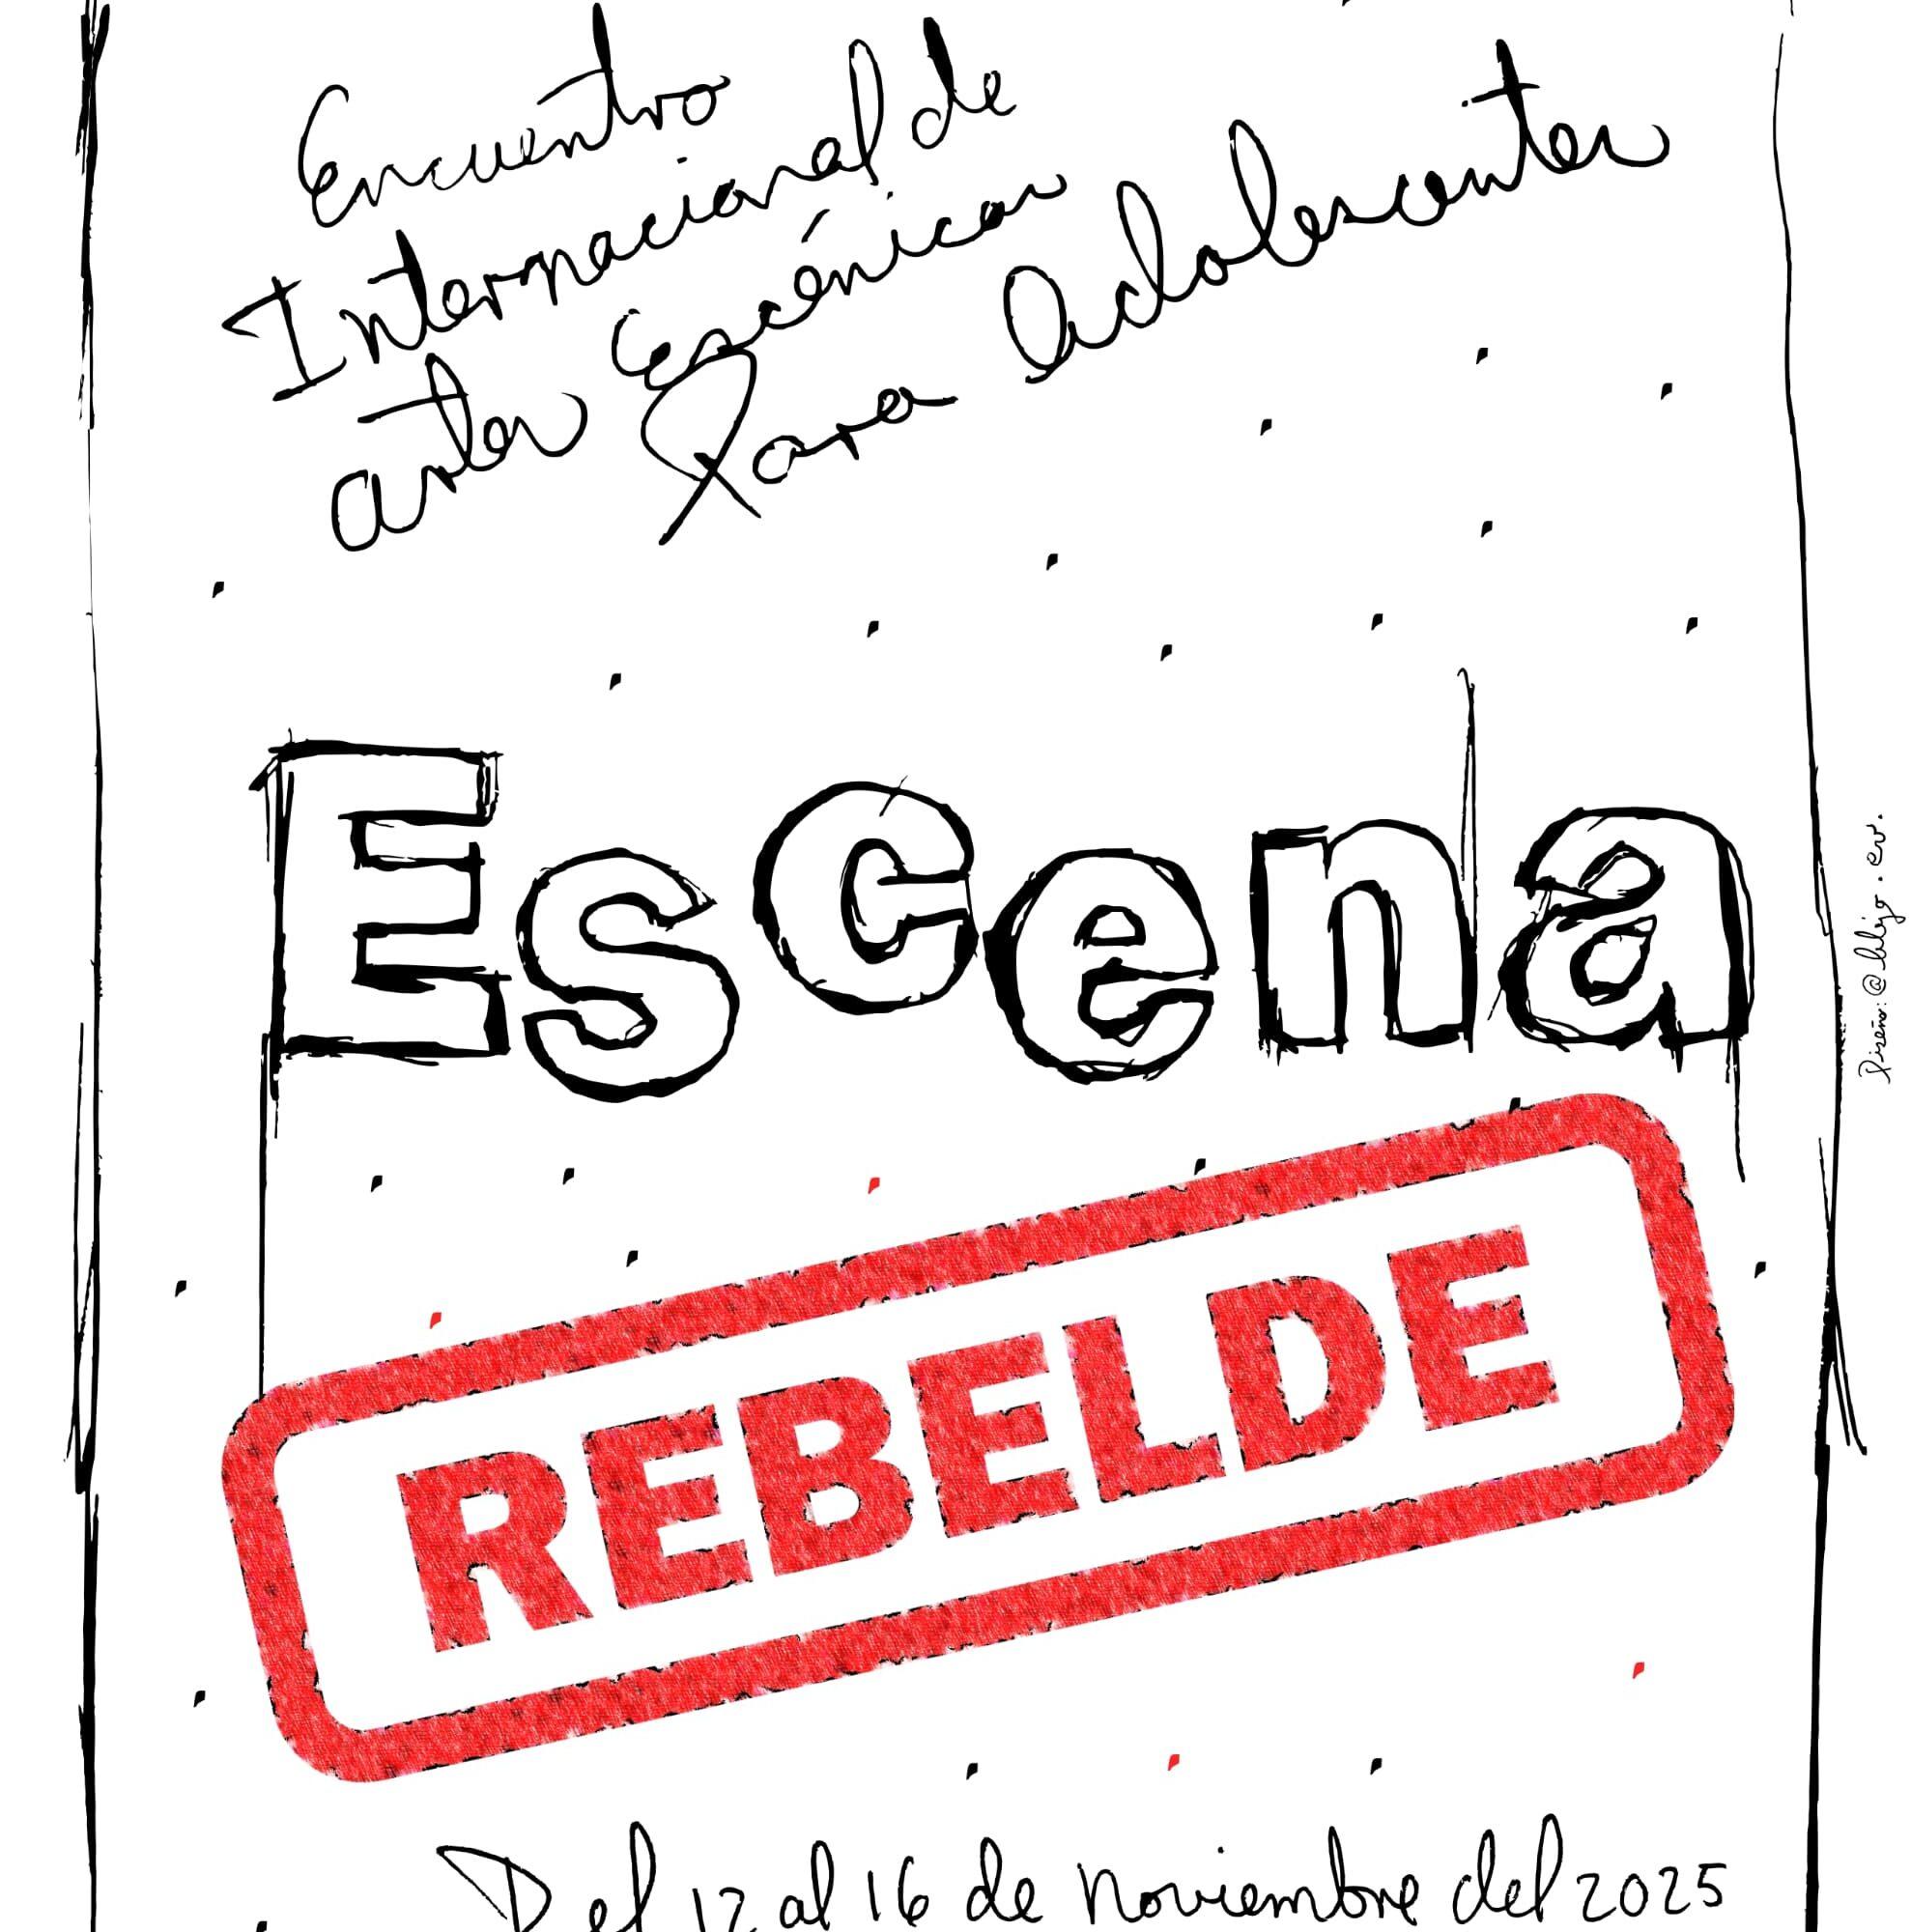 Encuentro
Internacional de
artes Escénicas
Para Adolescentes
Escena
REBELDE
Del 12 al 16 de Noviembre del 2025
Diseño: @